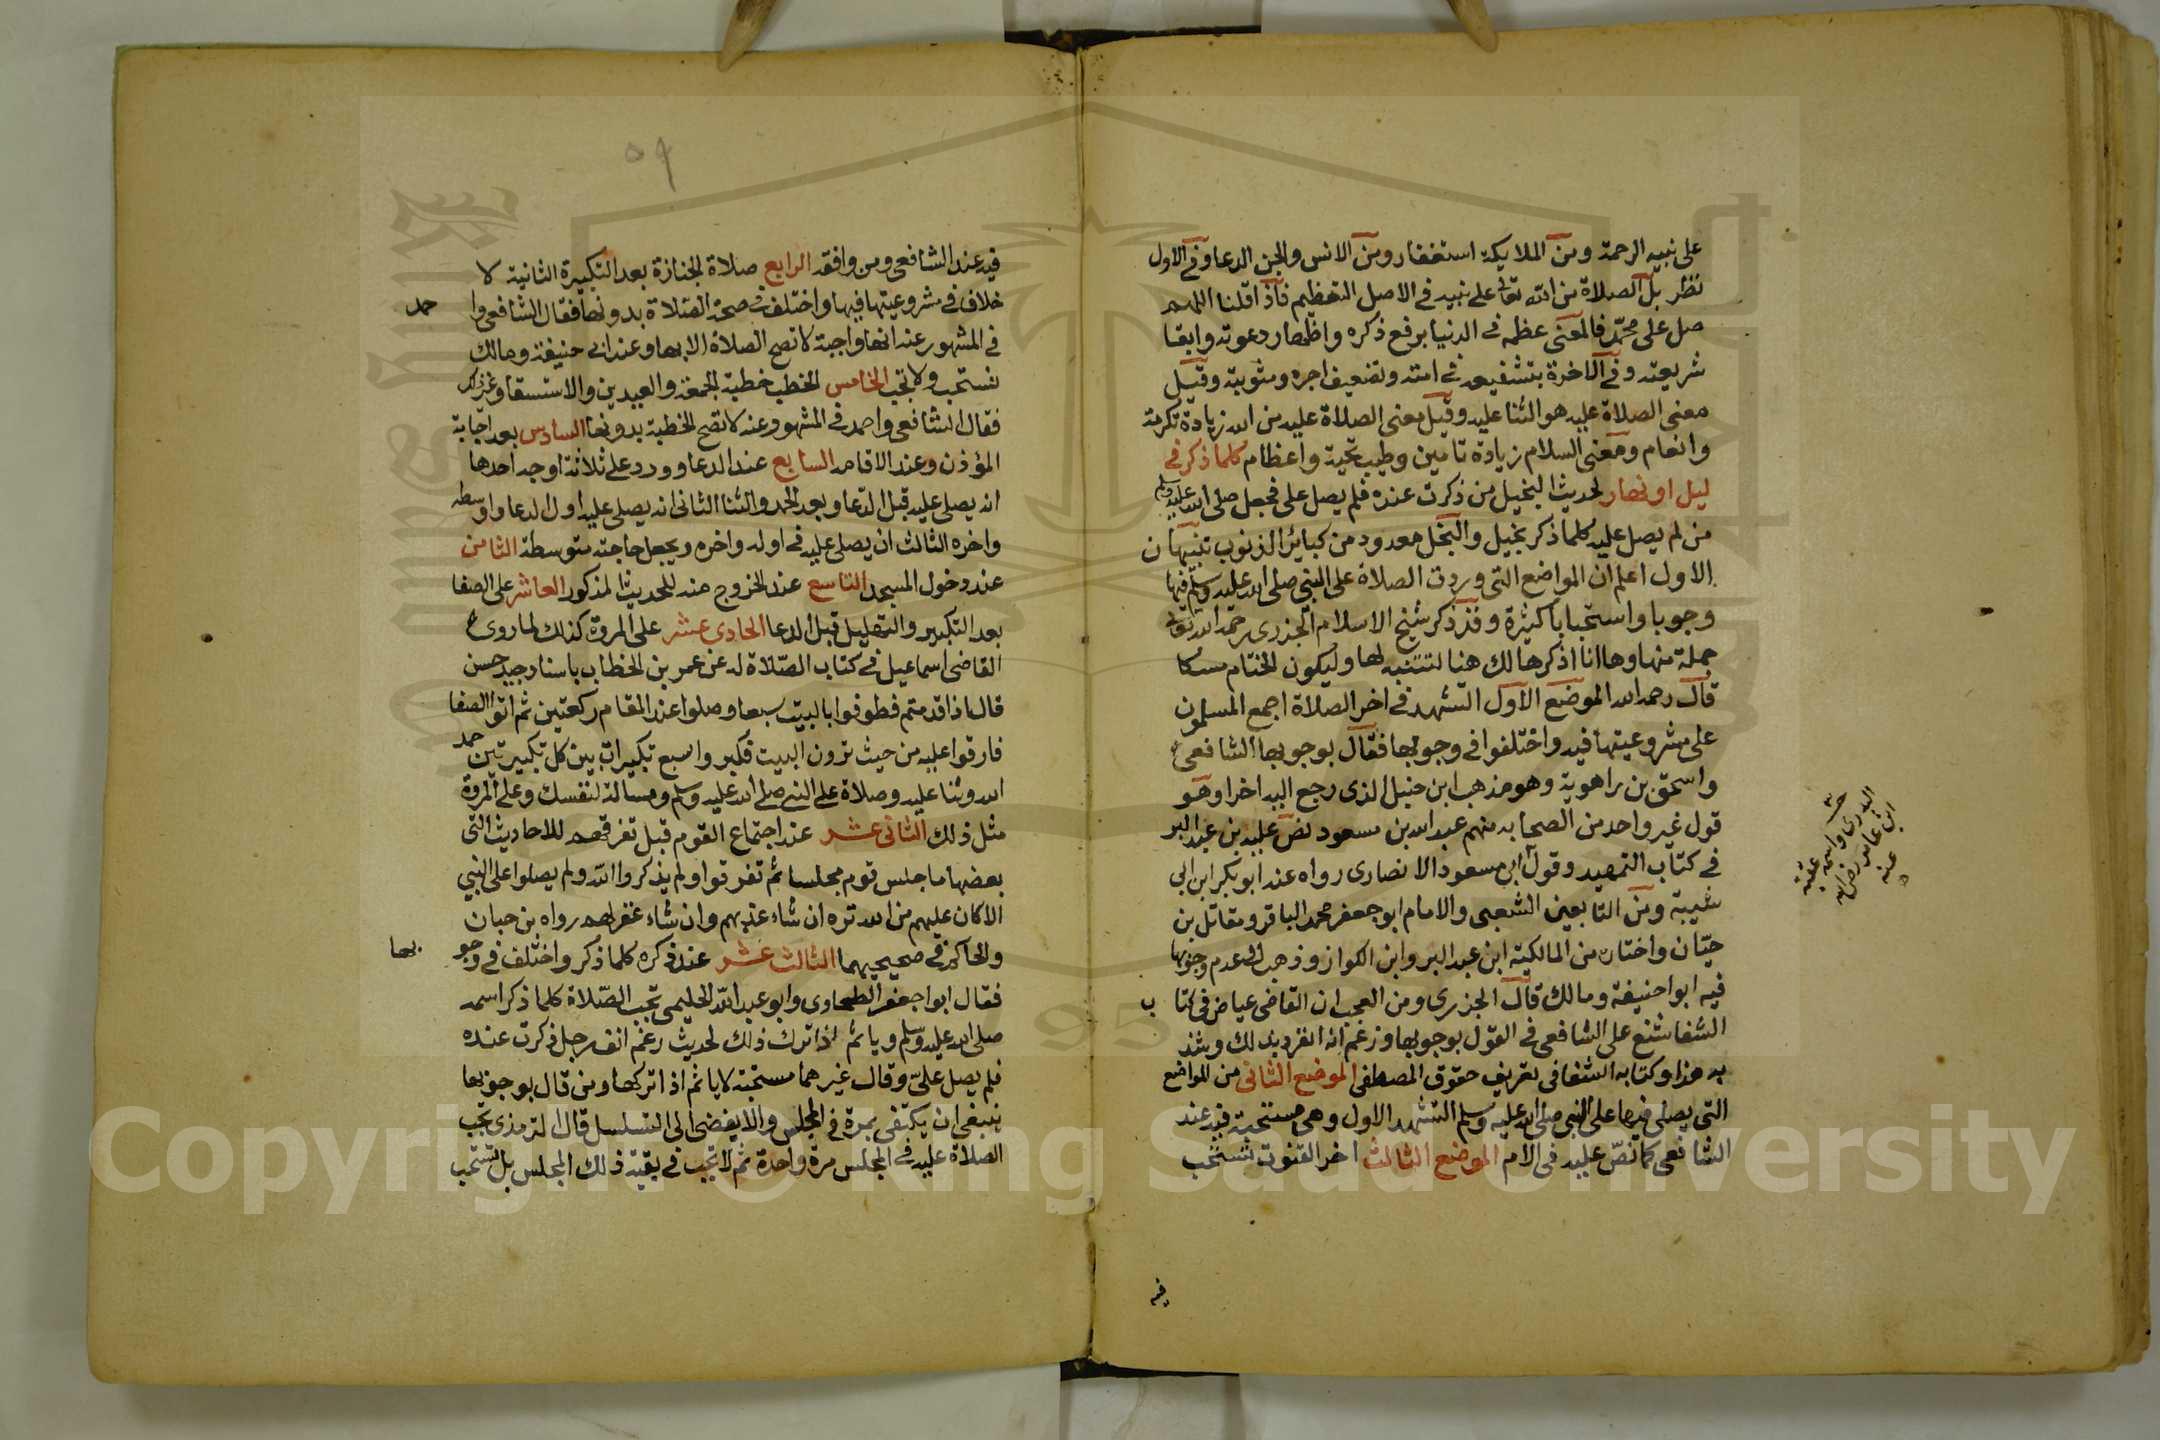 على نبيه الرحمة ومن الملايكة استغفار ومن الانس والجن الدعا وفي الاول
نظر بل الصلاة من الله تعالى على نبيه في الاصل التعظيم فاذا قلنا اللهم
صل على محمد فالمعنى عظمه في الدنيا برفع ذكره واظهار دعوته وابقا
شريعته وفي الاخرة بتشفيعه في امته وتضعيف اجره ومثوبته وقيل
معنى الصلاة عليه هو الثنا عليه وقيل معنى الصلاة عليه من الله زيادة تكرمة
وانعام ومعنى السلام زيادة تامين وطيب تحية واعظام كلما ذكر في
ليل او نهار لحديث البخيل من ذكرت عنده فلم يصل على فجعل صلى الله عليه وسلم
من لم يصل عليه كلما ذكر بخيل والبخل معدود من كبائر الذنوب تنبيهان
الاول اعلم ان المواضع التي وردت الصلاة على النبي صلى الله عليه وسلم فيها
وجوبا واستحبابا كثيرة وقد ذكر شيخ الاسلام الجزري رحمه الله تعالى
جملة منها وها انا اذكرها لك هنا لتتنبه لها وليكون الختام مسكا
قال رحمه الله الموضع الاول التشهد في اخر الصلاة اجمع المسلمون
على مشروعيتها فيه واختلفوا في وجوبها فقال بوجوبها الشافعي
واسحق بن راهوية وهو مذهب ابن حنبل الذى رجع اليه اخرا وهو
قول غير واحد من الصحابه منهم عبد الله بن مسعود نص عليه بن عبد البر
في كتاب التمهيد وقول ابن مسعود الانصارى رواه عنه ابو بكر ابن ابى
شيبة ومن التابعين الشعبى والامام ابو جعفر محمد الباقر ومقاتل بن
حيان واختاره من المالكية ابن عبد البر وابن الكواز وذهب الى عدم وجوبها
فيه ابو احنيفة ومالك قال الجزرى ومن العجب ان القاضى عياض في كتا ب
الشفا شنع على الشافعى في القول بوجوبها وزعم انه انفرد بذلك وشذ
به هذا وكتابه الشفا في تعريف حقوق المصطفى الموضع الثانى من المواضع
التى يصلى فيها على النبى صلى الله عليه وسلم التشهد الاول وهى مستحبة فيه عند
الشافعى كما نص عليه فى الام الموضع الثالث اخر القنوت تستحب
فيه
البدرى واسمه عقبة
ابن عامر رضى الله
عنه
٥٩
فيه عند الشافعى ومن وافقه الرابع صلاة الجنازة بعد التكبيرة الثانية لا
خلاف في مشروعيتها فيها واختلف في صحة الصلاة بدونها فقال الشافعى وا حمد
في المشهور عنه انها واجبة لا تصح الصلاة الا بها وعند ابى حنيفة ومالك
تستحب ولا تجب الخامس الخطب خطبة الجمعة والعيدين والاستسقا وغير ذلك
فقال الشافعى واحمد في المشهور عنه لا تصح الخطبة بدونها السادس بعد اجابة
المؤذن وعند الاقامه السابع عند الدعا وورد على ثلاثة اوجه احدها
ان يصلى عليه قبل الدعا وبعد الحمد والثنا الثانى انه يصلى عليه اول الدعا واوسطه
واخره الثالث ان يصلى عليه في اوله واخره ويجعل حاجته متوسطة الثامن
عند دخول المسجد التاسع عند الخروج منه للحديث المذكور العاشر على الصفا
بعد التكبير والتهليل قبل الدعا الحادى عشر على المروة كذلك لما روى
القاضى اسماعيل في كتاب الصلاة له عن عمر بن الخطاب باسناد جيد حسن
قال اذا قدمتم فطوفوا بالبيت سبعا وصلوا عند المقام ركعتين ثم اتوا الصفا
فارقوا عليه من حيث ترون البيت فكبروا سبع تكبيرات بين كل تكبيرتين حمد
الله وثنا عليه وصلاة على النبي صلى الله عليه وسلم ومسالة لنفسك وعلى المروة
مثل ذلك الثانى عشر عند اجتماع القوم قبل تفرقهم للاحاديث التى
بعضها ما جلس قوم مجلسا ثم تفرقوا ولم يذكروا الله ولم يصلوا على النبي
الا كان عليهم من الله تره ان شاء عذبهم وان شاء غفر لهم رواه بن حبان
والحاكم في صحيحيهما الثالث عشر عند ذكره كلما ذكر واختلف في وجو بها
فقال ابو اجعفر الطحاوى وابو عبد الله الحليمى تجب الصلاة كلما ذكر اسمه
صلى الله عليه وسلم وياثم اذا ترك ذلك لحديث رغم انف رجل ذكرت عنده
فلم يصل على وقال غيرهما مستحبة لا ياثم اذا تركها ومن قال بوجوبها
ينبغى ان يكتفى بمرة في المجلس والا يفضى الى التسلسل قال الترمذى تجب
الصلاة عليه في المجلس مرة واحدة ثم لا تجب في بقية ذلك المجلس بل تستحب
Copyright © King Saud University